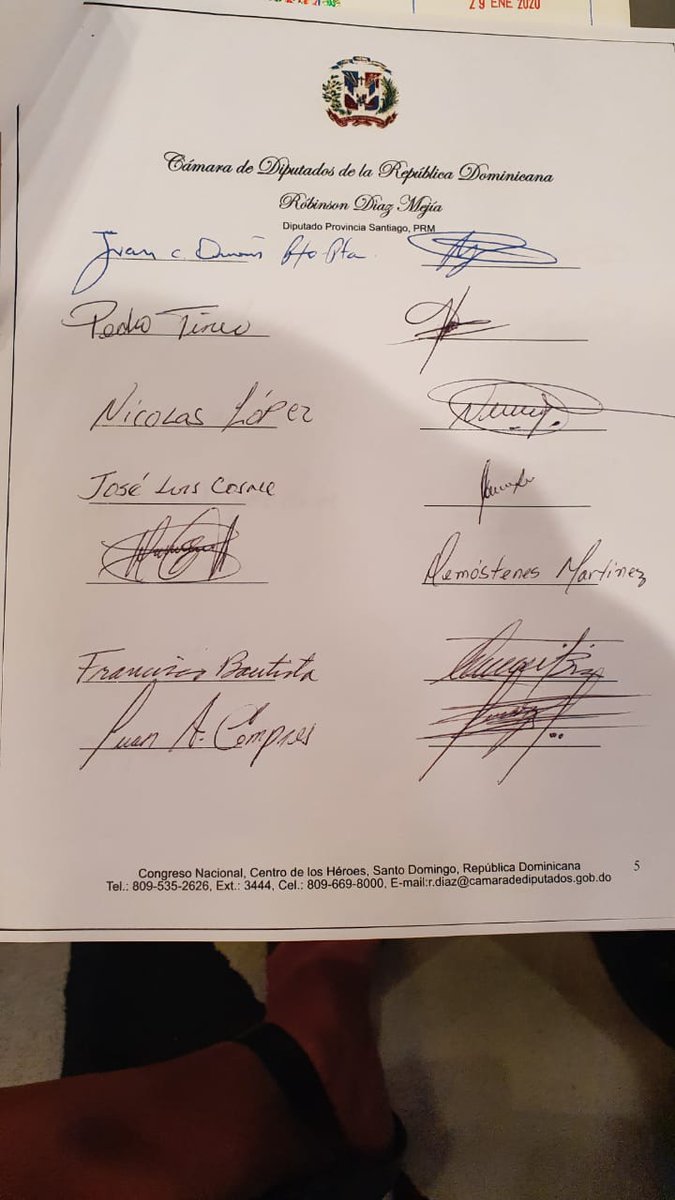 29 ENE 2020
Cámara de Diputados de la República Dominicana
Róbinson Díaz Mejía
Diputado Provincia Santiago, PRM
Juan C. Pto Pta.
Pedro Tineo
Nicolas López
José Luis
Demóstenes Martinez
Francisco Bautista
Juan A. Compres
5
Congreso Nacional, Centro de los Héroes, Santo Domingo, República Dominicana
Tel.: 809-535-2626, Ext.: 3444, Cel.: 809-669-8000, E-mail:r.diaz@camaradediputados.gob.do